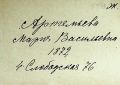 Ж.
Артемьева
Мария Васильевна
1872
4 Слободская 76